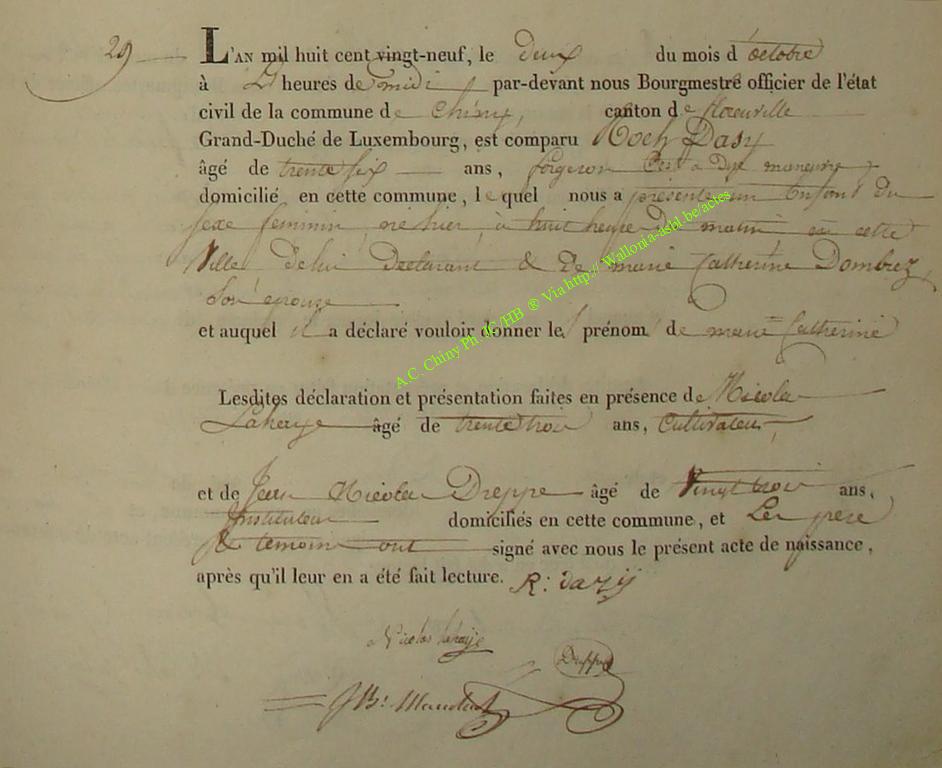 29
L'AN mil huit cent vingt-neuf, le deux du mois d'octobre
à heures de midi par-devant nous Bourgmestre officier de l'état
civil de la commune de Chiny, canton de florenville
Grand-Duché de Luxembourg, est comparu Roch Dasy
âgé de trente six ans, forgeron
domicilié en cette commune, lequel nous a presente un Enfant du
sexe feminin, né hier, à huit heure du matin en cette
Ville de lui Declarant & de marie Catherine Dombrez
Son epouse
et auquel il a déclaré vouloir donner les prénom de marie Catherine
Lesdites déclaration et présentation faites en présence de Nicolas
Lahaye âgé de trente trois ans, Cultivateur,
et de Jean Nicolas Dreppe âgé de Vingt trois ans,
Instituteur domiciliés en cette commune, et Les pere
& temoins ont signé avec nous le présent acte de naissance,
après qu'il leur en a été fait lecture. R: dazij
Nicolas lahaije
Dreppe
A.C. Chiny Ph. JC/HB ® Via http:// Wallonia-asbl.be/actes